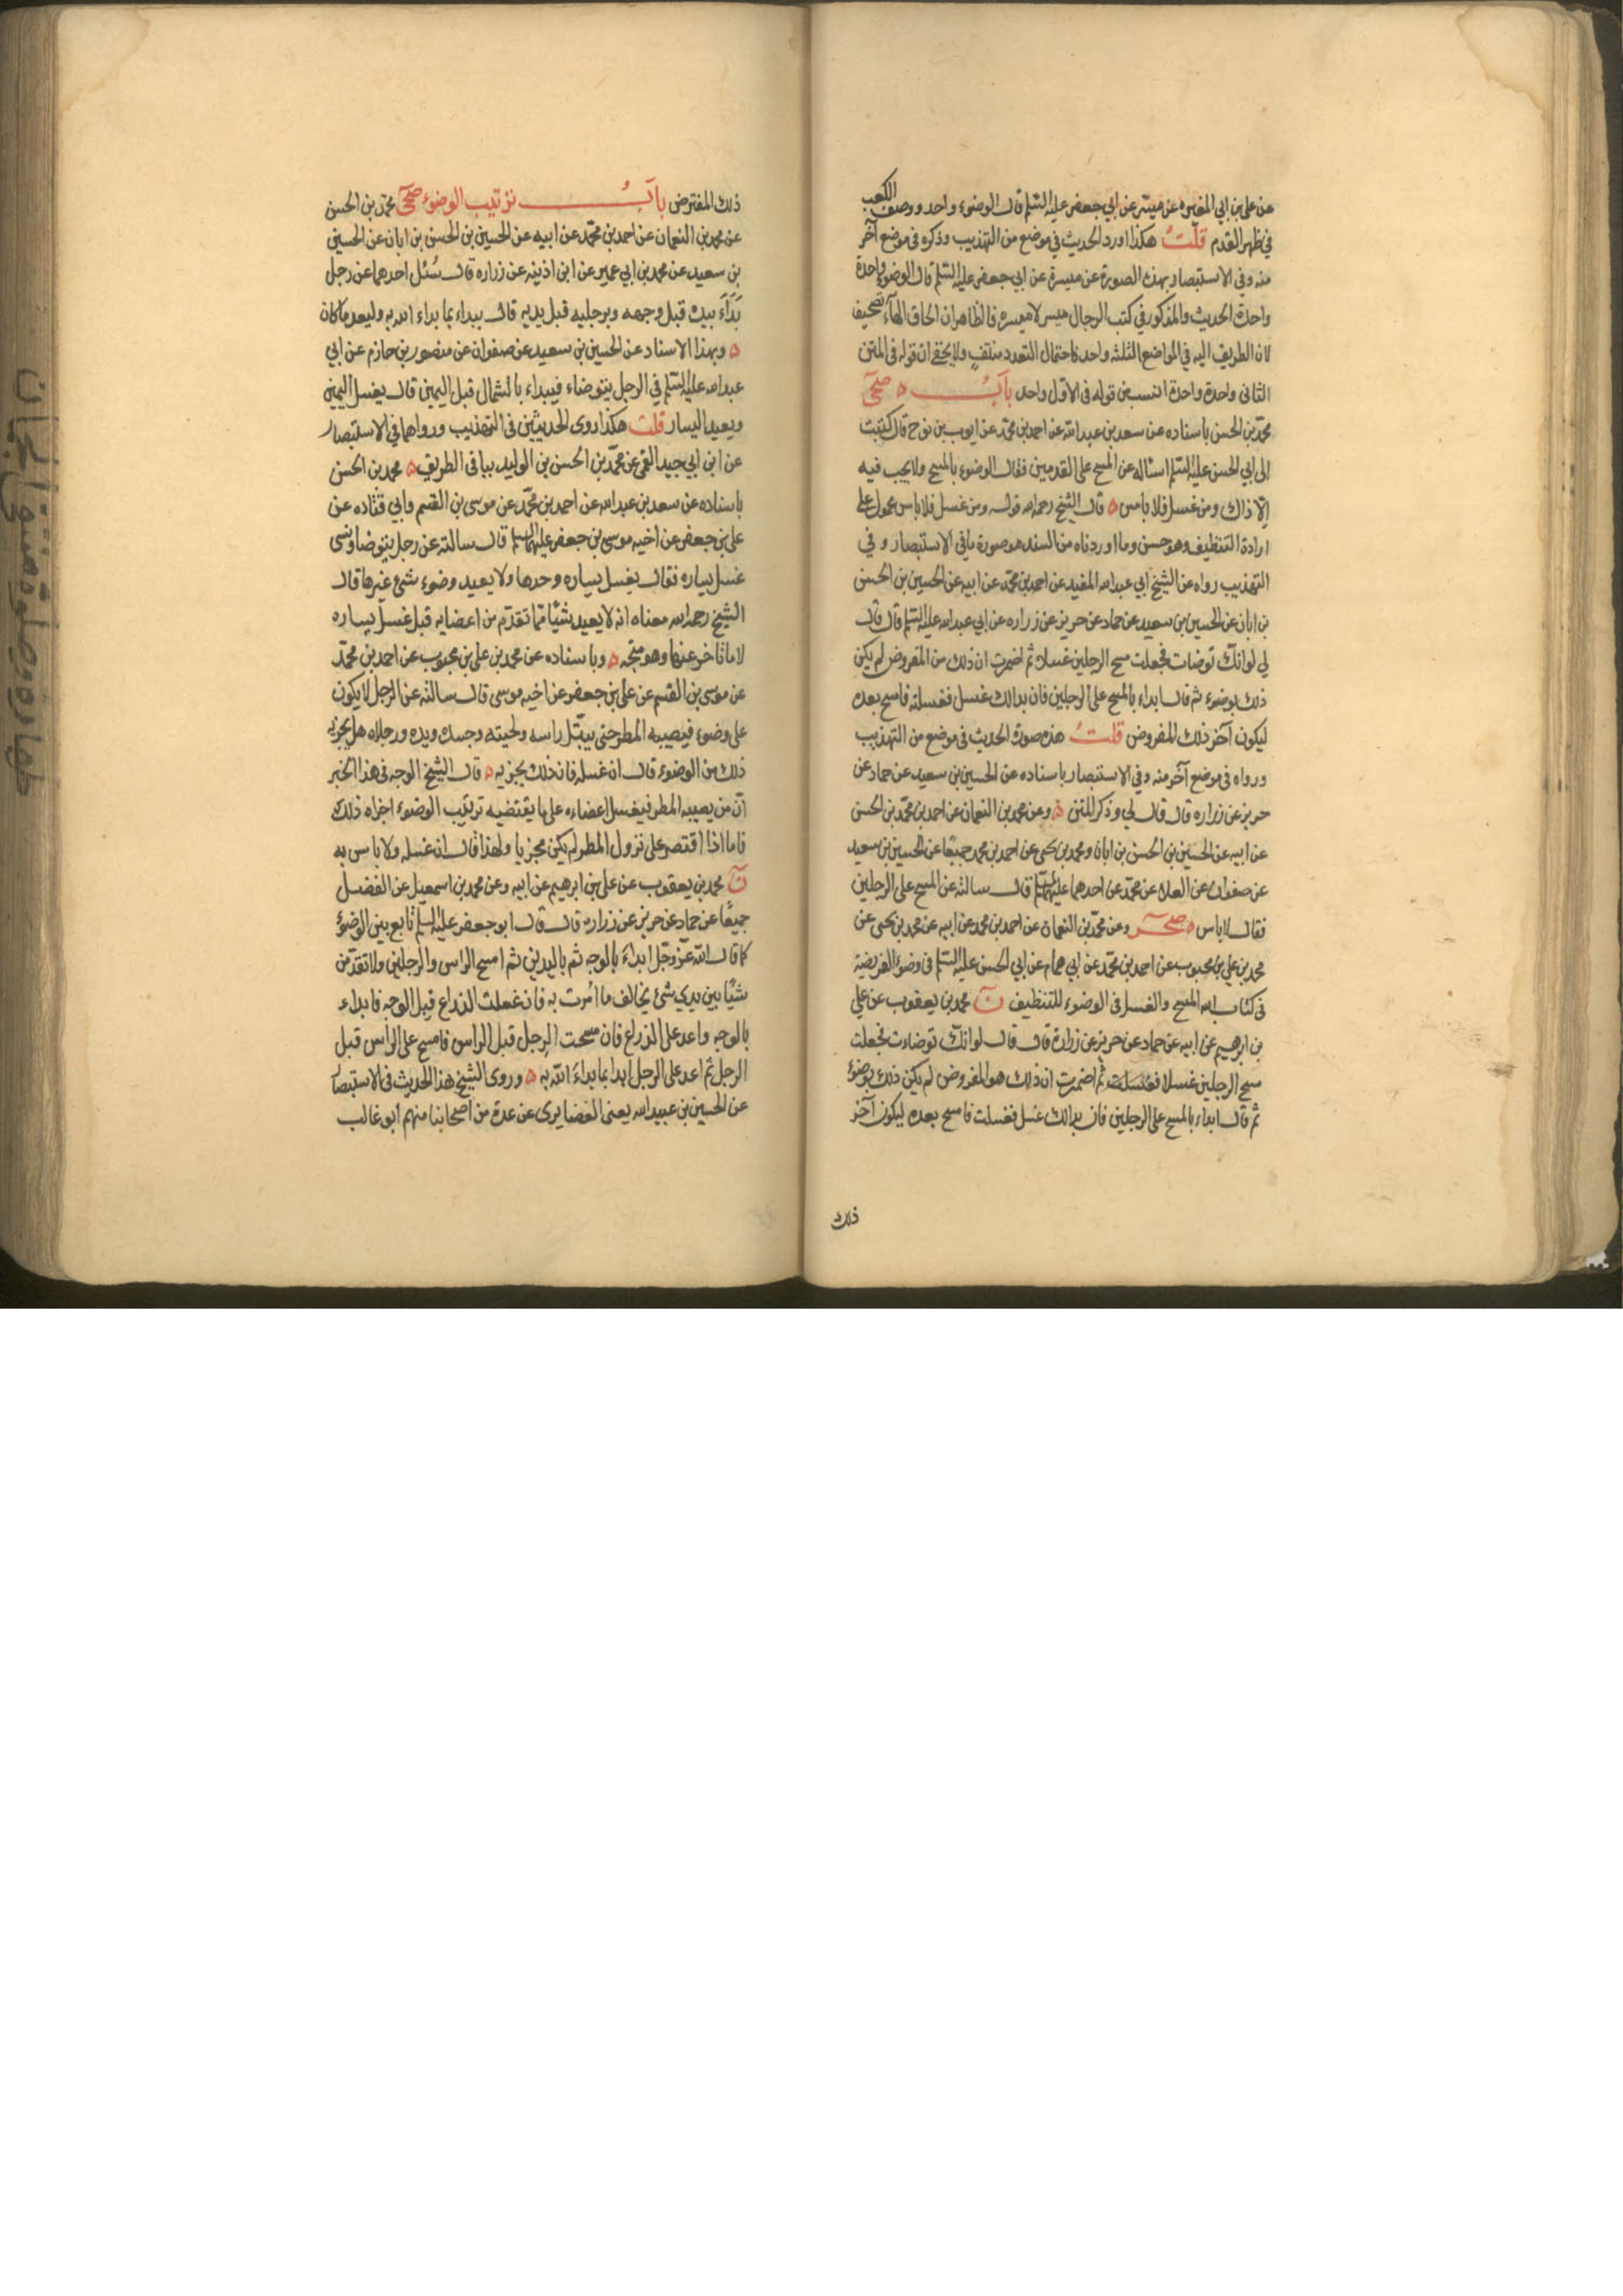 عن علي بن ابي المغيره عن ميسر عن ابي جعفر عليه السلم قال الوضوء واحد ووصف الكعب
في ظهر القدم قلت هكذا اورد الحديث في موضع من التهذيب وذكره في موضع آخر
منه وفي الاستبصار بهذه الصورة عن ميسرة عن ابي جعفر عليه السلم قال الوضوء واحدة
واحدة الحديث والمذكور في كتب الرجال ميسر لا ميسره فالظاهر ان الحاق الهآء تصحيف
لان الطريق اليه في المواضع الثلثه واحد فاحتمال التعدد منتفٍ ولا يخفى ان قوله في المتن
الثاني واحدة واحدة انسب من قوله في الاول واحد بآبُ ٥ صحي
محمد بن الحسن باسناده عن سعد بن عبد الله عن احمد بن محمد عن ايوب بن نوح قال كتبت
الى ابي الحسن عليه السلم اسئاله عن المسح على القدمين فقال الوضوء بالمسح ولا يجب فيه
إلا ذاك ومن غسل فلا باس ٥ قال الشيخ رحمه الله قوله ومن غسل فلا باس محمول على
ارادة التنظيف وهو حسن وما اوردناه من السند هو صورة ما في الاستبصار وفي
التهذيب رواه عن الشيخ ابي عبد الله المفيد عن احمد بن محمد عن ابيه عن الحسين بن الحسن
بن ابان عن الحسين بن سعيد عن حماد عن حريز عن زراره عن ابي عبد الله عليه السلم قال قال
لي لو انك توضات فجعلت مسح الرجلين غسلا ثم اضمرت ان ذلك من المفروض لم يكن
ذلك بوضوء ثم قال ابداء بالمسح على الرجلين فان بدا لك غسل فغسلته فامسح بعده
ليكون آخر ذلك المفروض قلتُ هذه صورة الحديث في موضع من التهذيب
ورواه في موضع آخر منه وفي الاستبصار باسناده عن الحسين بن سعيد عن حماد عن
حريز عن زراره قال قال لي وذكر المتن ٥ وعن محمد بن النعمان عن احمد بن محمد بن الحسن
عن ابيه عن الحسين بن الحسن بن ابان ومحمد بن يحيى عن احمد بن محمد جميعًا عن الحسين بن سعيد
عن صفوان عن العلاء عن محمد عن احدهما عليهما السلم قال سالته عن المسح على الرجلين
فقال لا باس ٥ صحر وعن محمد بن النعمان عن احمد بن محمد عن ابيه عن محمد بن يحيى عن
محمد بن علي بن محبوب عن احمد بن محمد عن ابي همام عن ابي الحسن عليه السلم في وضوء الفريضة
في كتاب الله المسح والغسل في الوضوء للتنظيف ن محمد بن يعقوب عن علي
بن ابرهيم عن ابيه عن حماد عن حريز عن زرارة قال قال لو انك توضات فجعلت
مسح الرجلين غسلا فغسلت ثم اضمرت ان ذلك هو المفروض لم يكن ذلك بوضوء
ثم قال ابداء بالمسح على الرجلين فان بدا لك غسل فغسلت فامسح بعده ليكون آخر
ذلك
ذلك المفترض بآبُ ترتيب الوضوء صحي محمد بن الحسن
عن محمد بن النعمان عن احمد بن محمد عن ابيه عن الحسين بن الحسن بن ابان عن الحسين
بن سعيد عن محمد بن ابي عمير عن ابن اذينه عن زراره قال سُئل احدهما عن رجل
بَدَأَ بيده قبل وجهه وبرجليه قبل يديه قال يبداء بما بداء الله به وليعد ما كان
٥ وبهذا الاسناد عن الحسين بن سعيد عن صفوان عن منصور بن حازم عن ابي
عبد الله عليه السلم في الرجل يتوضاء فيبداء بالشمال قبل اليمين قال يغسل اليمين
ويعيد اليسار قلت هكذا روى الحديثين في التهذيب ورواهما في الاستبصار
عن ابن ابي جيد القمي عن محمد بن الحسن بن الوليد بباقي الطريق ٥ محمد بن الحسن
باسناده عن سعد بن عبد الله عن احمد بن محمد عن موسى بن القسم وابي قتاده عن
علي بن جعفر عن اخيه موسى بن جعفر عليهما السلم قال سالته عن رجل يتوضا ونسى
غسل يساره فقال يغسل يساره وحدها ولا يعيد وضوء شيء غيرها قال
الشيخ رحمه الله معناه انه لا يعيد شيئًا مما تقدم من اعضايه قبل غسل يساره
لا ما تاخر عنها وهو متجه ٥ وباسناده عن محمد بن علي بن محبوب عن احمد بن محمد
عن موسى بن القسم عن علي بن جعفر عن اخيه موسى قال سالته عن الرجل لا يكون
على وضوء فيصيبه المطر حتى يبتل راسه ولحيته وجسده ويده ورجلاه هل يجزيه
ذلك من الوضوء قال ان غسله فان ذلك يجزيه ٥ قال الشيخ الوجه في هذا الخبر
ان من يصيبه المطر فيغسل اعضاءه على ما يقتضيه ترتيب الوضوء اجزاه ذلك
فاما اذا اقتصر على نزول المطر لم يكن مجزيا ولهذا قال ان غسله ولا باس به
ن محمد بن يعقوب عن علي بن ابرهيم عن ابيه وعن محمد بن اسمعيل عن الفضل
جميعًا عن حماد عن حريز عن زراره قال قال ابو جعفر عليه السلم تابع بين الوضوء
كما قال الله عز وجل ابداء بالوجه ثم باليدين ثم امسح الراس والرجلين ولا تقدمن
شيئًا بين يدي شئ يخالف ما اُمرت به فان غسلت الذراع قبل الوجه فابداء
بالوجه واعد على الذراع فان مسحت الرجل قبل الراس فامسح على الراس قبل
الرجل ثم اعد على الرجل ابدا بما بداء الله به ٥ وروى الشيخ هذا الحديث في الاستبصار
عن الحسين بن عبيد الله يعنى الغضايرى عن عدة من اصحابنا منهم ابو غالب